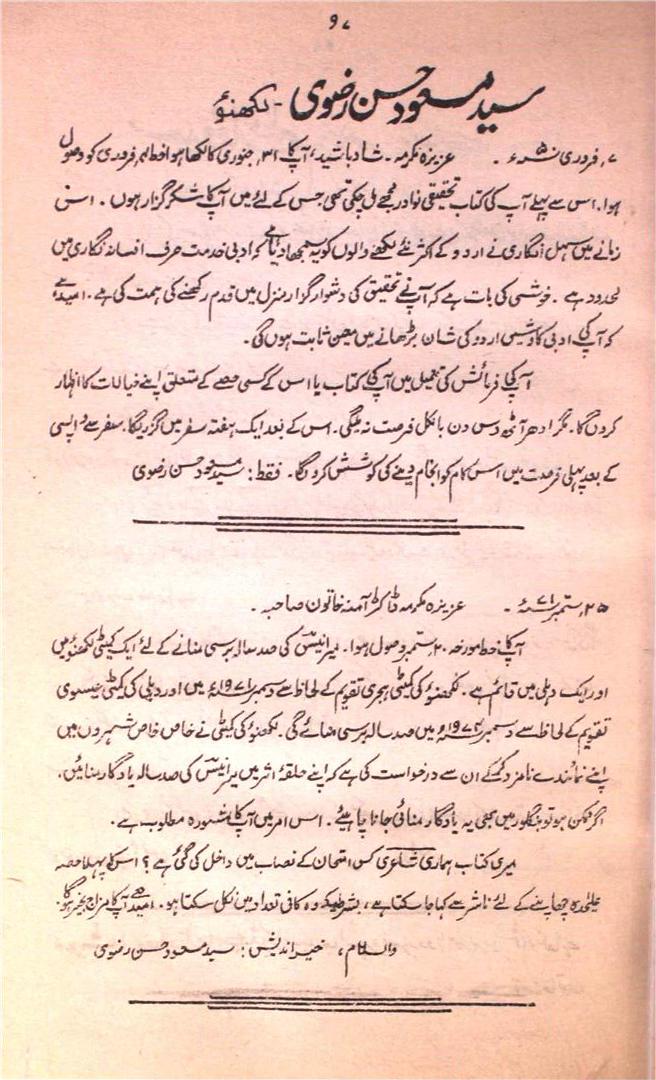 ۹۷
سید مسعود حسن رضوی - لکھنؤ
۷؍ فروری ۵۰ء ۔ عزیزہ مکرمہ ۔ شاد باشید، آپ کا ۳۱؍ جنوری کا لکھا ہوا خط ۴؍ فروری کو وصول
ہوا۔ اس سے پہلے آپ کی کتاب تحقیقی نوادر مجھے مل چکی تھی جس کے لئے میں آپ کا شکر گزار ہوں ۔ اس
زمانے میں سہل انگاری نے اردو کے اکثر نئے لکھنے والوں کو یہ سمجھا دیا ہے کہ ادبی خدمت صرف افسانہ نگاری میں
محدود ہے ۔ خوشی کی بات ہے کہ آپ نے تحقیق کی دشوار گزار منزل میں قدم رکھنے کی ہمت کی ہے ۔ امید ہے
کہ آپ کی ادبی کاوشیں اردو کی شان بڑھانے میں معین ثابت ہوں گی ۔
آپ کی فرمائش کی تعمیل میں آپ کی کتاب یا اس کے کسی حصے کے متعلق اپنے خیالات کا اظہار
کروں گا۔ مگر ادھر آٹھ دس دن بالکل فرصت نہ ملیگی ۔ اس کے بعد ایک ہفتہ سفر میں گزریگا۔ سفر سے واپسی
کے بعد پہلی فرصت میں اس کام کو انجام دینے کی کوشش کرونگا ۔ فقط : سید مسعود حسن رضوی
۲۵؍ ستمبر ۷۱ء ۔ عزیزہ مکرمہ ڈاکٹر آمنہ خاتون صاحبہ ۔
آپ کا خط مورخہ ۲۰؍ ستمبر وصول ہوا ۔ میر انیس کی صد سالہ برسی منانے کے لئے ایک کمیٹی لکھنؤ میں
اور ایک دہلی میں قائم ہے ۔ لکھنؤ کی کمیٹی ہجری تقویم کے لحاظ سے دسمبر ۱۹۷۱ء میں اور دہلی کی کمیٹی عیسوی
تقویم کے لحاظ سے دسمبر ۱۹۷۴ء میں صد سالہ برسی منائے گی ۔ لکھنؤ کی کمیٹی نے خاص خاص شہروں میں
اپنے نمائندے نامزد کر کے ان سے درخواست کی ہے کہ اپنے حلقۂ اثر میں میر انیس کی صد سالہ یادگار منائیں ۔
اگر ممکن ہو تو بنگلور میں بھی یہ یادگار منائی جانا چاہیئے ۔ اس امر میں آپ کا مشورہ مطلوب ہے ۔
میری کتاب ہماری شاعری کس امتحان کے نصاب میں داخل کی گئی ہے ؟ اس کا پہلا حصہ
علحدہ چھاپنے کے لئے ناشر سے کہا جا سکتا ہے ، بشرطیکہ وہ کافی تعداد میں نکل سکتا ہو ۔ امید ہے آپ کا مزاج بخیر ہوگا ۔
والسلام ، خیر اندیش : سید مسعود حسن رضوی